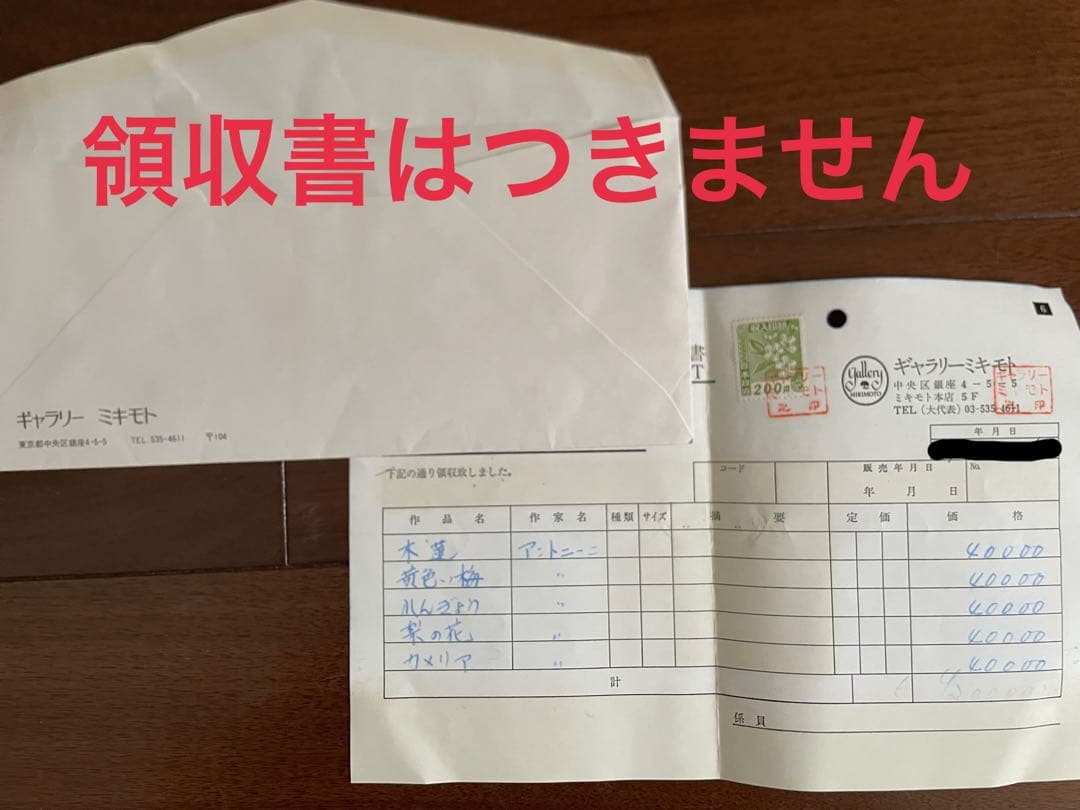 領収書はつきません
ギャラリー ミキモト
東京都中央区銀座4-5-5 TEL 535-4611 〒104
6
書
T
収入印紙
200円
gallery
MIKIMOTO
ギャラリーミキモト
中央区銀座4-5-5
ミキモト本店 5F
TEL (大代表) 03-535-4611
年月日
下記の通り領収致しました。
コード
販売年月日
No.
年 月 日
作品名 作家名 種類 サイズ 摘要 定価 価格
木蓮 アントニーニ 40000
黄色い梅 〃 40000
れんぎょう 〃 40000
梨の花 〃 40000
カメリア 〃 40000
計
係員